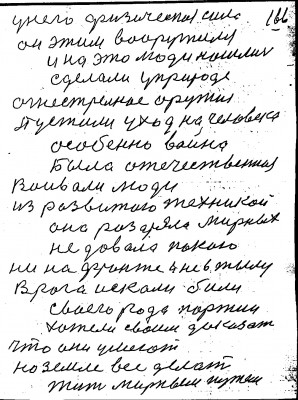 166
у него физическая сила
он этим вооружили
и на это люди пошли
сделали у природе
огнестрелное оружия
Пустили уход на человека
особенно война
была отечественная
Воивали люди
из развитого техникой
она розаряла мирных
не довала покого
ни на фронте и не в тылу
Врога искали били
своего рода портии
хотели своим доказат
что они умеют
на земле все делат
жит мирным путем